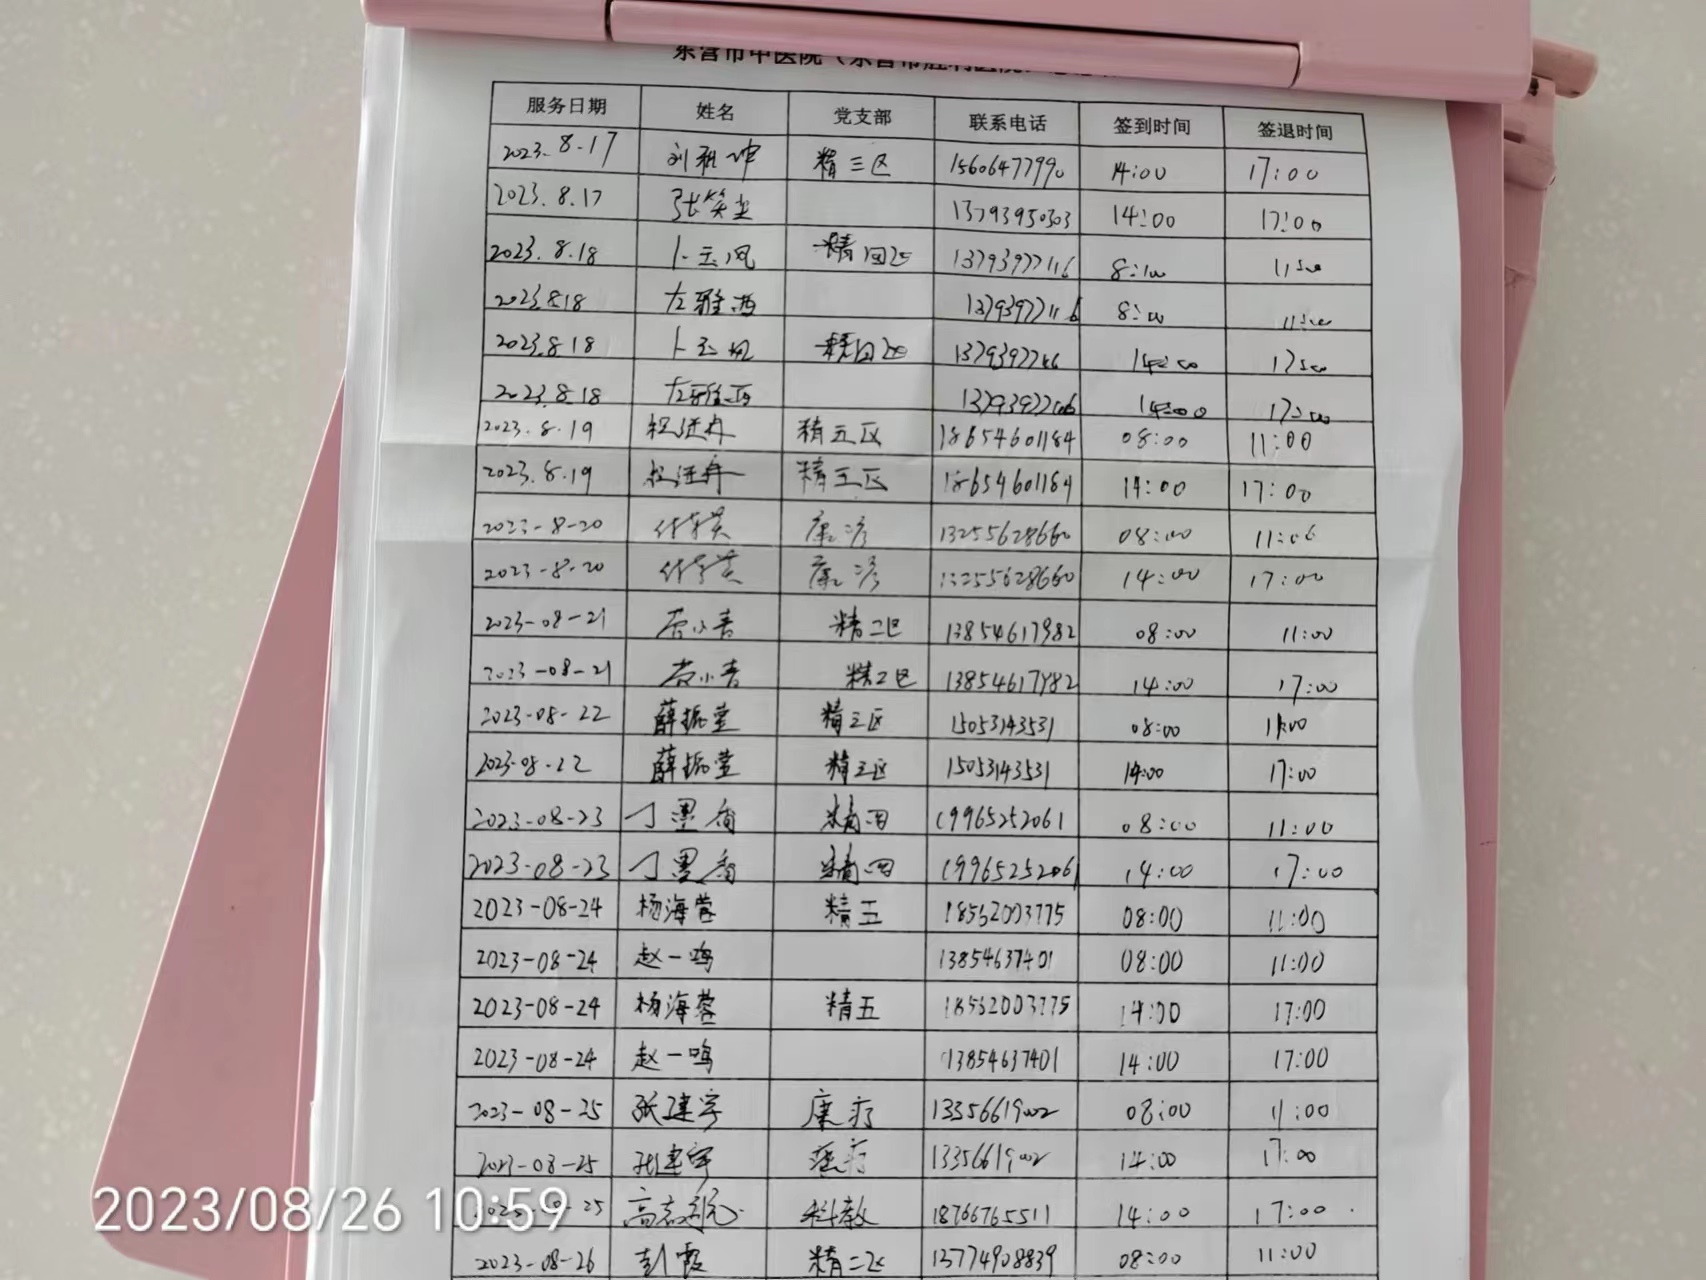 东营市中医院（东营市胜利医院
服务日期 姓名 党支部 联系电话 签到时间 签退时间
2023.8.17 刘 坤 精三区 15606477990 14:00 17:00
2023.8.17 张笑尘 13793950303 14:00 17:00
2023.8.18 卜云凤 精四区 13793977116 8:00 11:00
2023.8.18 左雅西 13793977116 8:00 11:00
2023.8.18 卜云凤 精四区 14:00 17:00
2023.8.18 左雅西 14:00 17:00
2023.8.19 精五区 18654601184 08:00 11:00
2023.8.19 精五区 18654601184 14:00 17:00
2023-8-20 康疗 13255628660 08:00 11:00
2023-8-20 康疗 13255628660 14:00 17:00
2023-08-21 小青 精二区 13854617982 08:00 11:00
2023-08-21 小青 精二区 13854617982 14:00 17:00
2023-08-22 薛振堂 精三区 15053143531 08:00 11:00
2023-08-22 薛振堂 精三区 15053143531 14:00 17:00
2023-08-23 丁墨香 精四 19965252061 08:00 11:00
2023-08-23 丁墨香 精四 19965252061 14:00 17:00
2023-08-24 杨海蓉 精五 18562003775 08:00 11:00
2023-08-24 赵一鸣 13854637401 08:00 11:00
2023-08-24 杨海蓉 精五 18562003775 14:00 17:00
2023-08-24 赵一鸣 13854637401 14:00 17:00
2023-08-25 张建宇 康疗 13356619002 08:00 11:00
2023-08-25 张建宇 康疗 13356619002 14:00 17:00
25 高志 科教 18766765511 14:00 17:00
2023-08-26 彭霞 精二区 13774908839 08:00 11:00
2023/08/26 10:59